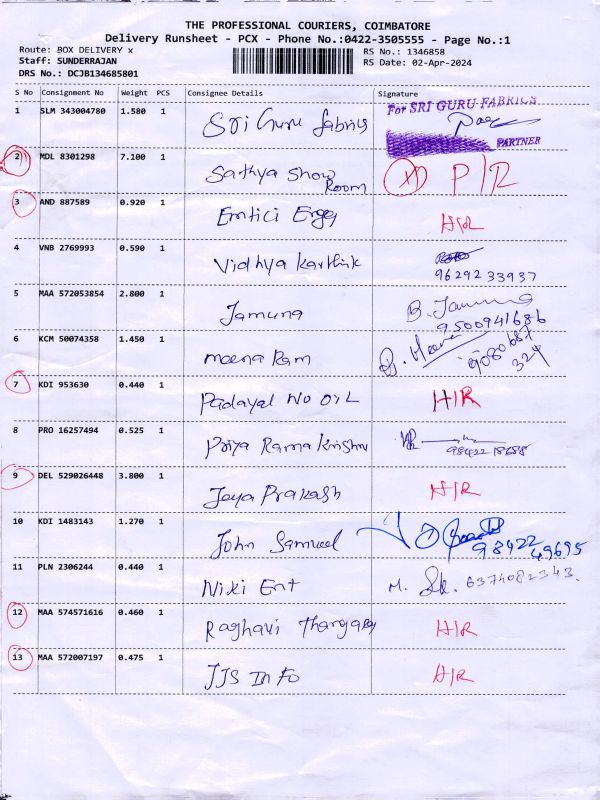 THE PROFESSIONAL COURIERS, COIMBATORE
Delivery Runsheet - PCX - Phone No.:0422-3505555 - Page No.:1
Route: BOX DELIVERY x
RS No.: 1346858
Staff: SUNDERRAJAN
RS Date: 02-Apr-2024
DRS No.: DCJB134685801
S No Consignment No Weight PCS Consignee Details Signature
1 SLM 343004780 1.580 1 Sri Guru fabrics For SRI GURU FABRICS
PARTNER
2 MDL 8301298 7.100 1 Sathya Show Room P/R
3 AND 887589 0.920 1 Emtici H/R
4 VNB 2769993 0.590 1 Vidhya Karthik
9629233937
5 MAA 572053854 2.800 1 Jamuna B. Jamuna
9500941686
6 KCM 50074358 1.450 1 Meena Ram Meena 9080687
324
7 KDI 953630 0.440 1 Padayal No OiL H/R
8 PRO 16257494 0.525 1 Priya Rama Krishnu
9 DEL 529026448 3.800 1 Jaya Prakash H/R
10 KDI 1483143 1.270 1 John Samuel 98422
49695
11 PLN 2306244 0.440 1 Niki Ent M. 6374082343.
12 MAA 574571616 0.460 1 Raghavi H/R
13 MAA 572007197 0.475 1 JJS Info H/R